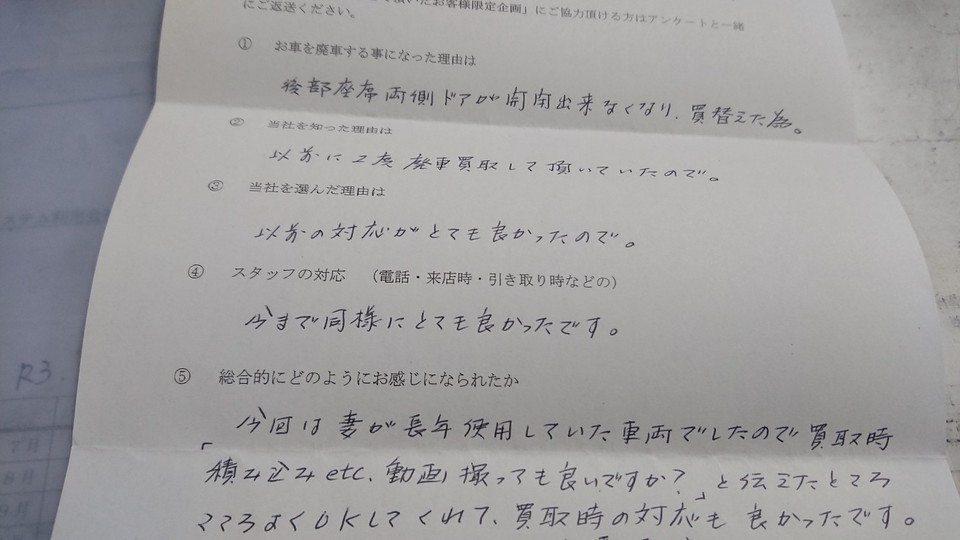 頂いたお客様限定企画」にご協力頂ける方はアンケートと一緒
にご返送ください。
① お車を廃車する事になった理由は
後部座席両側ドアが開閉出来なくなり、買替えた為。
② 当社を知った理由は
以前に2度廃車買取して頂いていたので。
③ 当社を選んだ理由は
以前の対応がとても良かったので。
④ スタッフの対応 (電話・来店時・引き取り時などの)
今まで同様にとても良かったです。
⑤ 総合的にどのようにお感じになられたか
今回は妻が長年使用していた車両でしたので買取時
「積み込みetc.動画撮っても良いですか?」と伝えたところ
こころよくOKしてくれて、買取時の対応も良かったです。
R3.